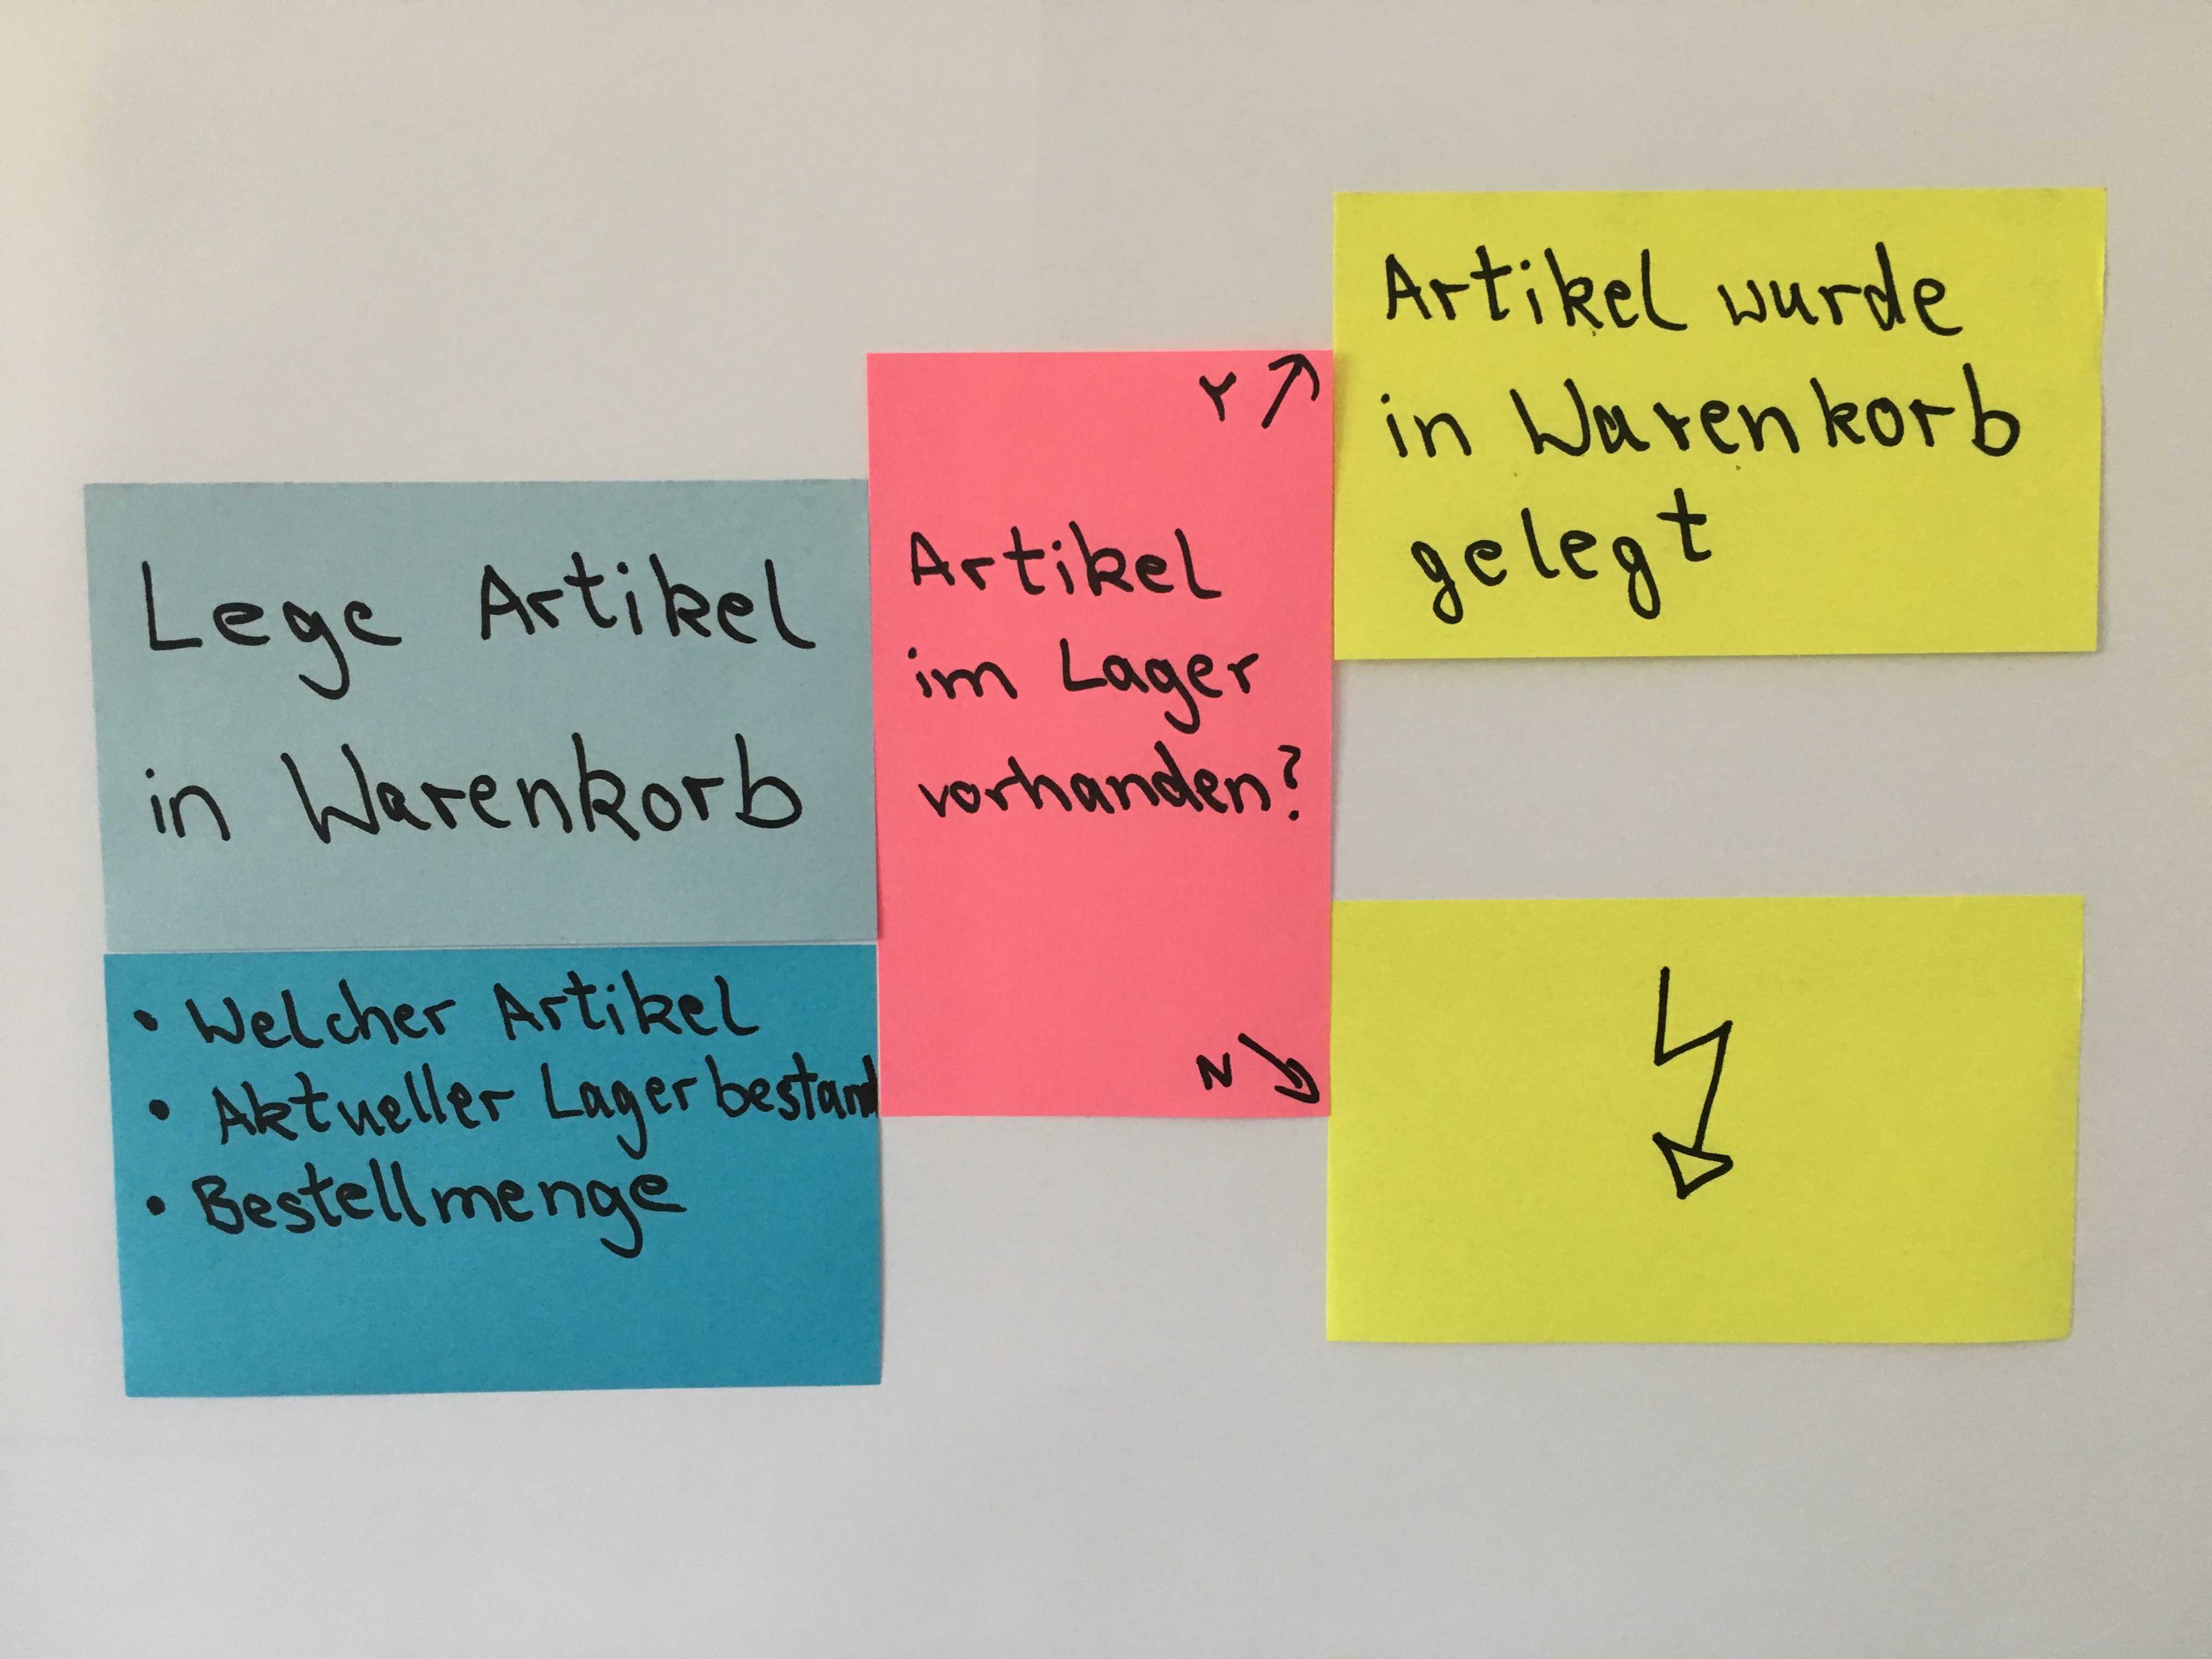 Lege Artikel
in Warenkorb
• Welcher Artikel
• Aktueller Lagerbestand
• Bestellmenge
Y
Artikel
im Lager
vorhanden?
N
Artikel wurde
in Warenkorb
gelegt